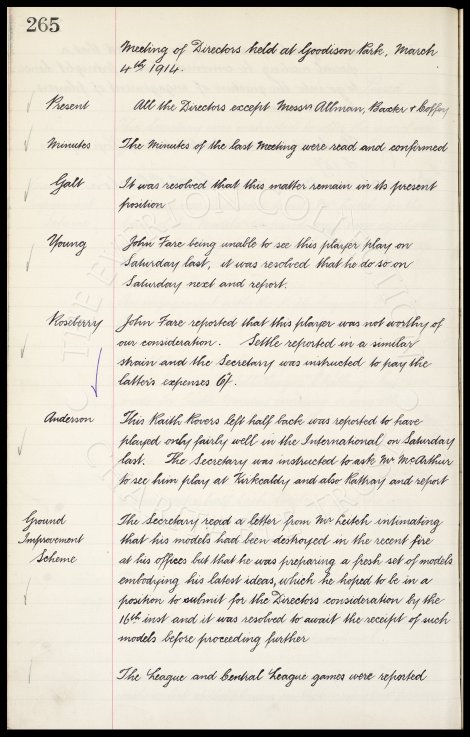 265
Meeting of Directors held at Goodison Park, March
4th 1914.
Present All the Directors except Messrs Allman, Baxter & Coffey
Minutes The Minutes of the last Meeting were read and confirmed
Galt It was resolved that this matter remain in its present
position
Young John Fare being unable to see this player play on
Saturday last, it was resolved that he do so on
Saturday next and report.
Roseberry John Fare reported that this player was not worthy of
our consideration. Settle reported in a similar
strain and the Secretary was instructed to pay the
latter's expenses 6/.
Anderson This Raith Rovers left half back was reported to have
played only fairly well in the International on Saturday
last. The Secretary was instructed to ask Mr McArthur
to see him play at Kirkcaldy and also Rattray and report
Ground The Secretary read a letter from Mr Leitch intimating
Improvement that his models had been destroyed in the recent fire
Scheme at his offices but that he was preparing a fresh set of models
embodying his latest ideas, which he hoped to be in a
position to submit for the Directors consideration by the
16th inst and it was resolved to await the receipt of such
models before proceeding further
The League and Central League games were reported
THE EVERTON COLLECTION
CHARITABLE TRUST